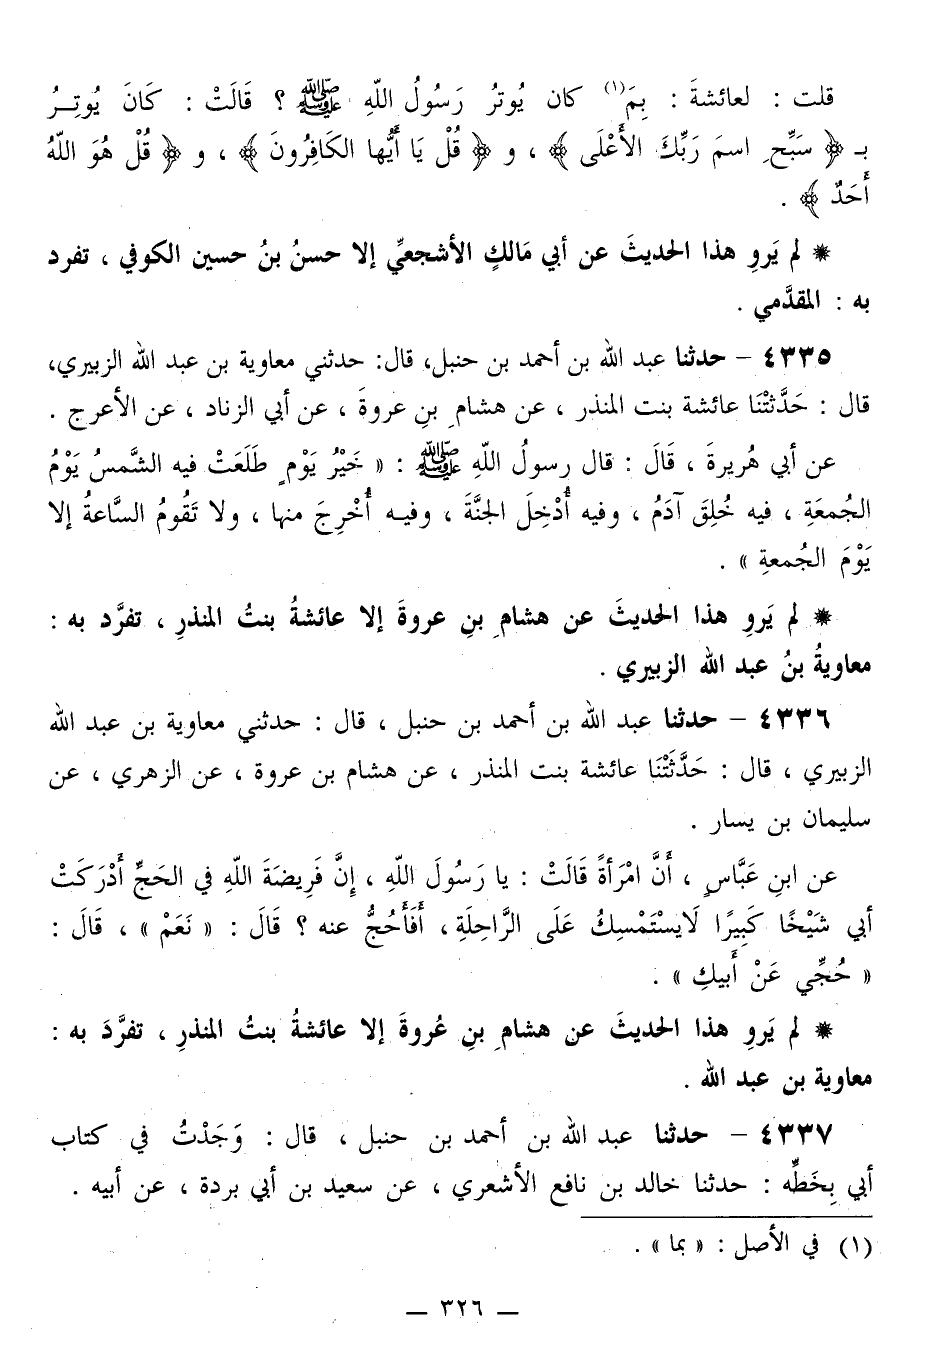 قلت : لعائشةَ : بِمَ(١) كان يُوترُ رَسُولُ اللّهِ ﷺ ؟ قَالَتْ : كَانَ يُوتِـرُ
بـ ﴿ سَبِّحِ اسمَ رَبِّكَ الأَعْلَى ﴾ ، و ﴿ قُلْ يَا أَيُّها الكَافِرُونَ ﴾ ، و ﴿ قُلْ هُوَ اللّهُ
أَحَدٌ ﴾ .
* لم يَروِ هذا الحديثَ عن أبي مَالكٍ الأشجعيِّ إلا حسنُ بنُ حسين الكوفي ، تفرد
به : المقدَّمي .
٤٣٣٥ – حدثنا عبد الله بن أحمد بن حنبل، قال: حدثني معاوية بن عبد الله الزبيري،
قال : حَدَّثتْنَا عائشة بنت المنذر ، عن هشامِ بنِ عروةَ ، عن أبي الزناد ، عن الأعرج .
عن أبي هُريرةَ ، قَالَ : قال رسولُ اللّهِ ﷺ : « خَيْرُ يَوْمٍ طَلَعَتْ فيه الشَّمسُ يَوْمُ
الجُمعَةِ ، فيه خُلِقَ آدَمُ ، وفيه أُدْخِلَ الجنَّةَ ، وفيـه أُخْرِجَ منها ، ولا تَقُومُ السَّاعةُ إلا
يَوْمَ الجُمعةِ » .
* لم يَروِ هذا الحديثَ عن هشامِ بنِ عروةَ إلا عائشةُ بنتُ المنذرِ ، تفرَّد به :
معاويةُ بنُ عبد الله الزبيري .
٤٣٣٦ – حدثنا عبد الله بن أحمد بن حنبل ، قال : حدثني معاوية بن عبد الله
الزبيري ، قال : حَدَّثَتْنَا عائشة بنت المنذر ، عن هشام بن عروة ، عن الزهري ، عن
سليمان بن يسار .
عن ابنِ عَبَّاسٍ ، أَنَّ امْرَأةً قَالَتْ : يا رَسُولَ اللّهِ ، إِنَّ فَرِيضَةَ اللّهِ في الحَجِّ أَدْرَكَتْ
أبي شَيْخًا كَبِيرًا لَايسْتَمْسِكُ عَلَى الرَّاحِلَةِ، أَفَأَحُجُّ عنه ؟ قَالَ : « نَعَمْ » ، قَالَ :
« حُجِّي عَنْ أَبيكِ » .
* لم يَروِ هذا الحديثَ عن هشامِ بنِ عُروةَ إلا عائشةُ بنتُ المنذرِ ، تفرَّدَ به :
معاوية بن عبد الله .
٤٣٣٧ – حدثنا عبد الله بن أحمد بن حنبل ، قال : وَجَدْتُ في كتاب
أبي بِخَطِّه : حدثنا خالد بن نافع الأشعري ، عن سعيد بن أبي بردة ، عن أبيه .
(١) في الأصل : « بما » .
– ٣٢٦ –